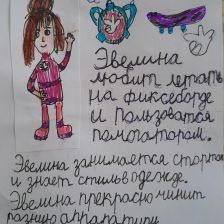 Эвелина
любит летать
на фиксеборде
и пользоваться
помогатором.
Эвелина занимается спортом
и знает стиль в одежде.
Эвелина прекрасно чинит
разную аппаратуру